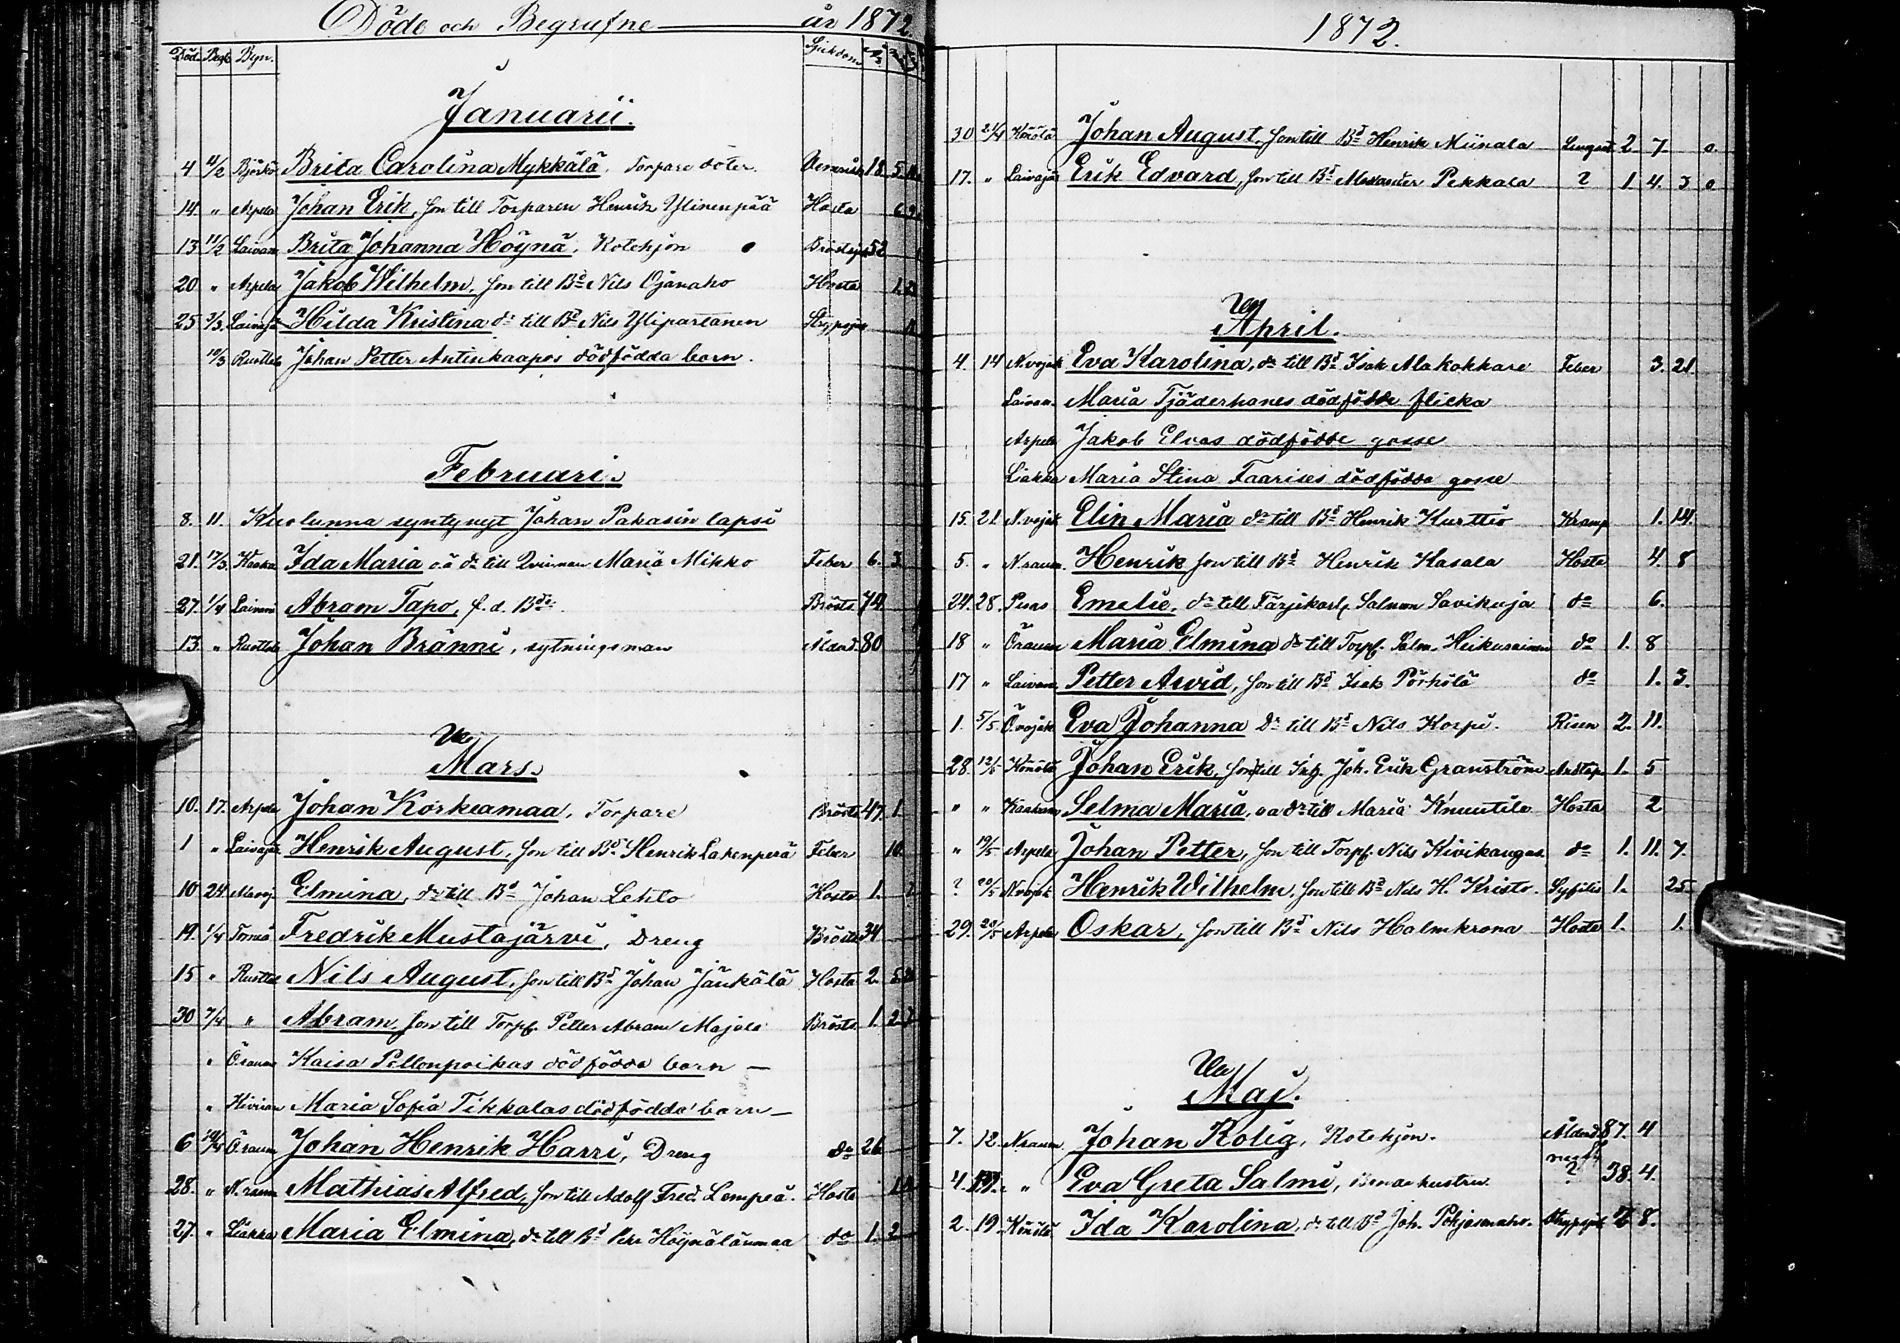 Döde och Begrafne år 1872.
Död. Begr. Byn. Sjukdom
Januarii.
4 11/2 Björkö Brita Carolina Mykkälä, Torpare doter. 18 5
14. " Arpela Johan Erik, son till Torparen Henrik Ylinenpää Hosta 6
13 11/2 Laivan Brita Johanna Höynä, Rotehjon 52
20 " Arpela Jakob Wilhelm, son till Bd Nils Ojanaho Hosta 1.
25 3/3 Laivajä Hilda Kristina dr till Bd Nils Ylipartanen Strypsju
10/3 Ruottala Johan Petter Antinkaapos dödfödda barn.
Februari.
8. 11. Kuolunna syntynyt Johan Pakasin lapsi
21. 17/3 Kaaka Ida Maria oä dr till Qvinnan Maria Mikko Feber 6. 3
27. 1/4 Laivani Abram Tapo, f.d. Bde Bröste 74
13 " Ruottala Johan Bränni, sytningsman Ålderd 80
Mars.
10. 17. Arpela Johan Korkeamaa, Torpare Bröste 47 1.
1 " Laivajär Henrik August, son till Bd Henrik Lakenperä Feber 10.
10 24 Alavoj Elmina, dr till Bd Johan Lehto Hosta 1.
19. 1/4 Torneå Fredrik Mustajärvi, Dreng Bröste 34
15 " Ruottal Nils August, son till Bd Johan Jänkälä Hosta 2.
30 7/4 " Abram, son till Torpf. Petter Abram Majala Bröste 1 2
" Ö.raum Kaisa Pellonpoikas dödfödda barn —
" Kiviran Maria Sofia Tikkalas dödfödda barn —
6 Ö.raum Johan Henrik Harri, Dreng do 26
28. " N.raum Mathias Alfred, son till Adolf Fred. Lempeä. Hosta
27. " Liakka Maria Elmina, dr till Bd Pehr Höynälänmaa do 1. 2
1872.
30 21/4 Könölä Johan August, son till Bd Henrik Miinala Lungsot 2 7 0
17. " Laivajär Erik Edvard, son till Bd Alexander Pekkala ? 1 4. 3 0
April.
4. 14 N.vojak Eva Karolina, dr till Bd Isak Alakokkare Feber 3. 21.
Laivan. Maria Tjäderhanes dödfödde flicka
Arpela Jakob Elvas dödfödde gosse
Liakka Maria Stina Faarises dödfödda gosse
15. 21. N.vojak Elin Maria dr till Bd Henrik Kurttio Kramp 1. 14.
5. " N.raum. Henrik son till Bd Henrik Hasala Hosta 4. 8
24. 28. Puas Emelie, dr till Färjekarl. Salmon Savikuja do 6.
18 " Ö.raum Maria Elmina dr till Torpf. Salm. Heikurainen do 1. 8
17 " Laivani Petter Arvid, son till Bd Isak Pörhölä do 1. 3.
1. 5/5 Ö.vojak Eva Johanna dr till Bd Nils Korpi. Risen 2. 11.
28. 12/5 Könölä Johan Erik, son till Inh. Joh. Erik Granström Andtäp 1. 5
" " Kaakam Selma Maria, oa dr till Maria Knuutila Hosta 2
" 19/5 Arpela Johan Petter, son till Torpf. Nils Kivikangas do 1. 11. 7.
? 20/5 N.vojak Henrik Wilhelm, son till Bd Nils H. Kristo. Syfilis 1. 25
29. 20/5 Arpela Oskar, son till Bd Nils Holmkrona Hosta 1. 1.
Maj.
7. 12. N.raum Johan Rolig, Rotehjon. Ålderd 87. 4
4. 19. " Eva Greta Salmi, Bondehustru ? 38. 4.
2. 19. Könölä Ida Karolina, dr till Bd Joh. Pohjasenaho. Strypsjuk 2 8.